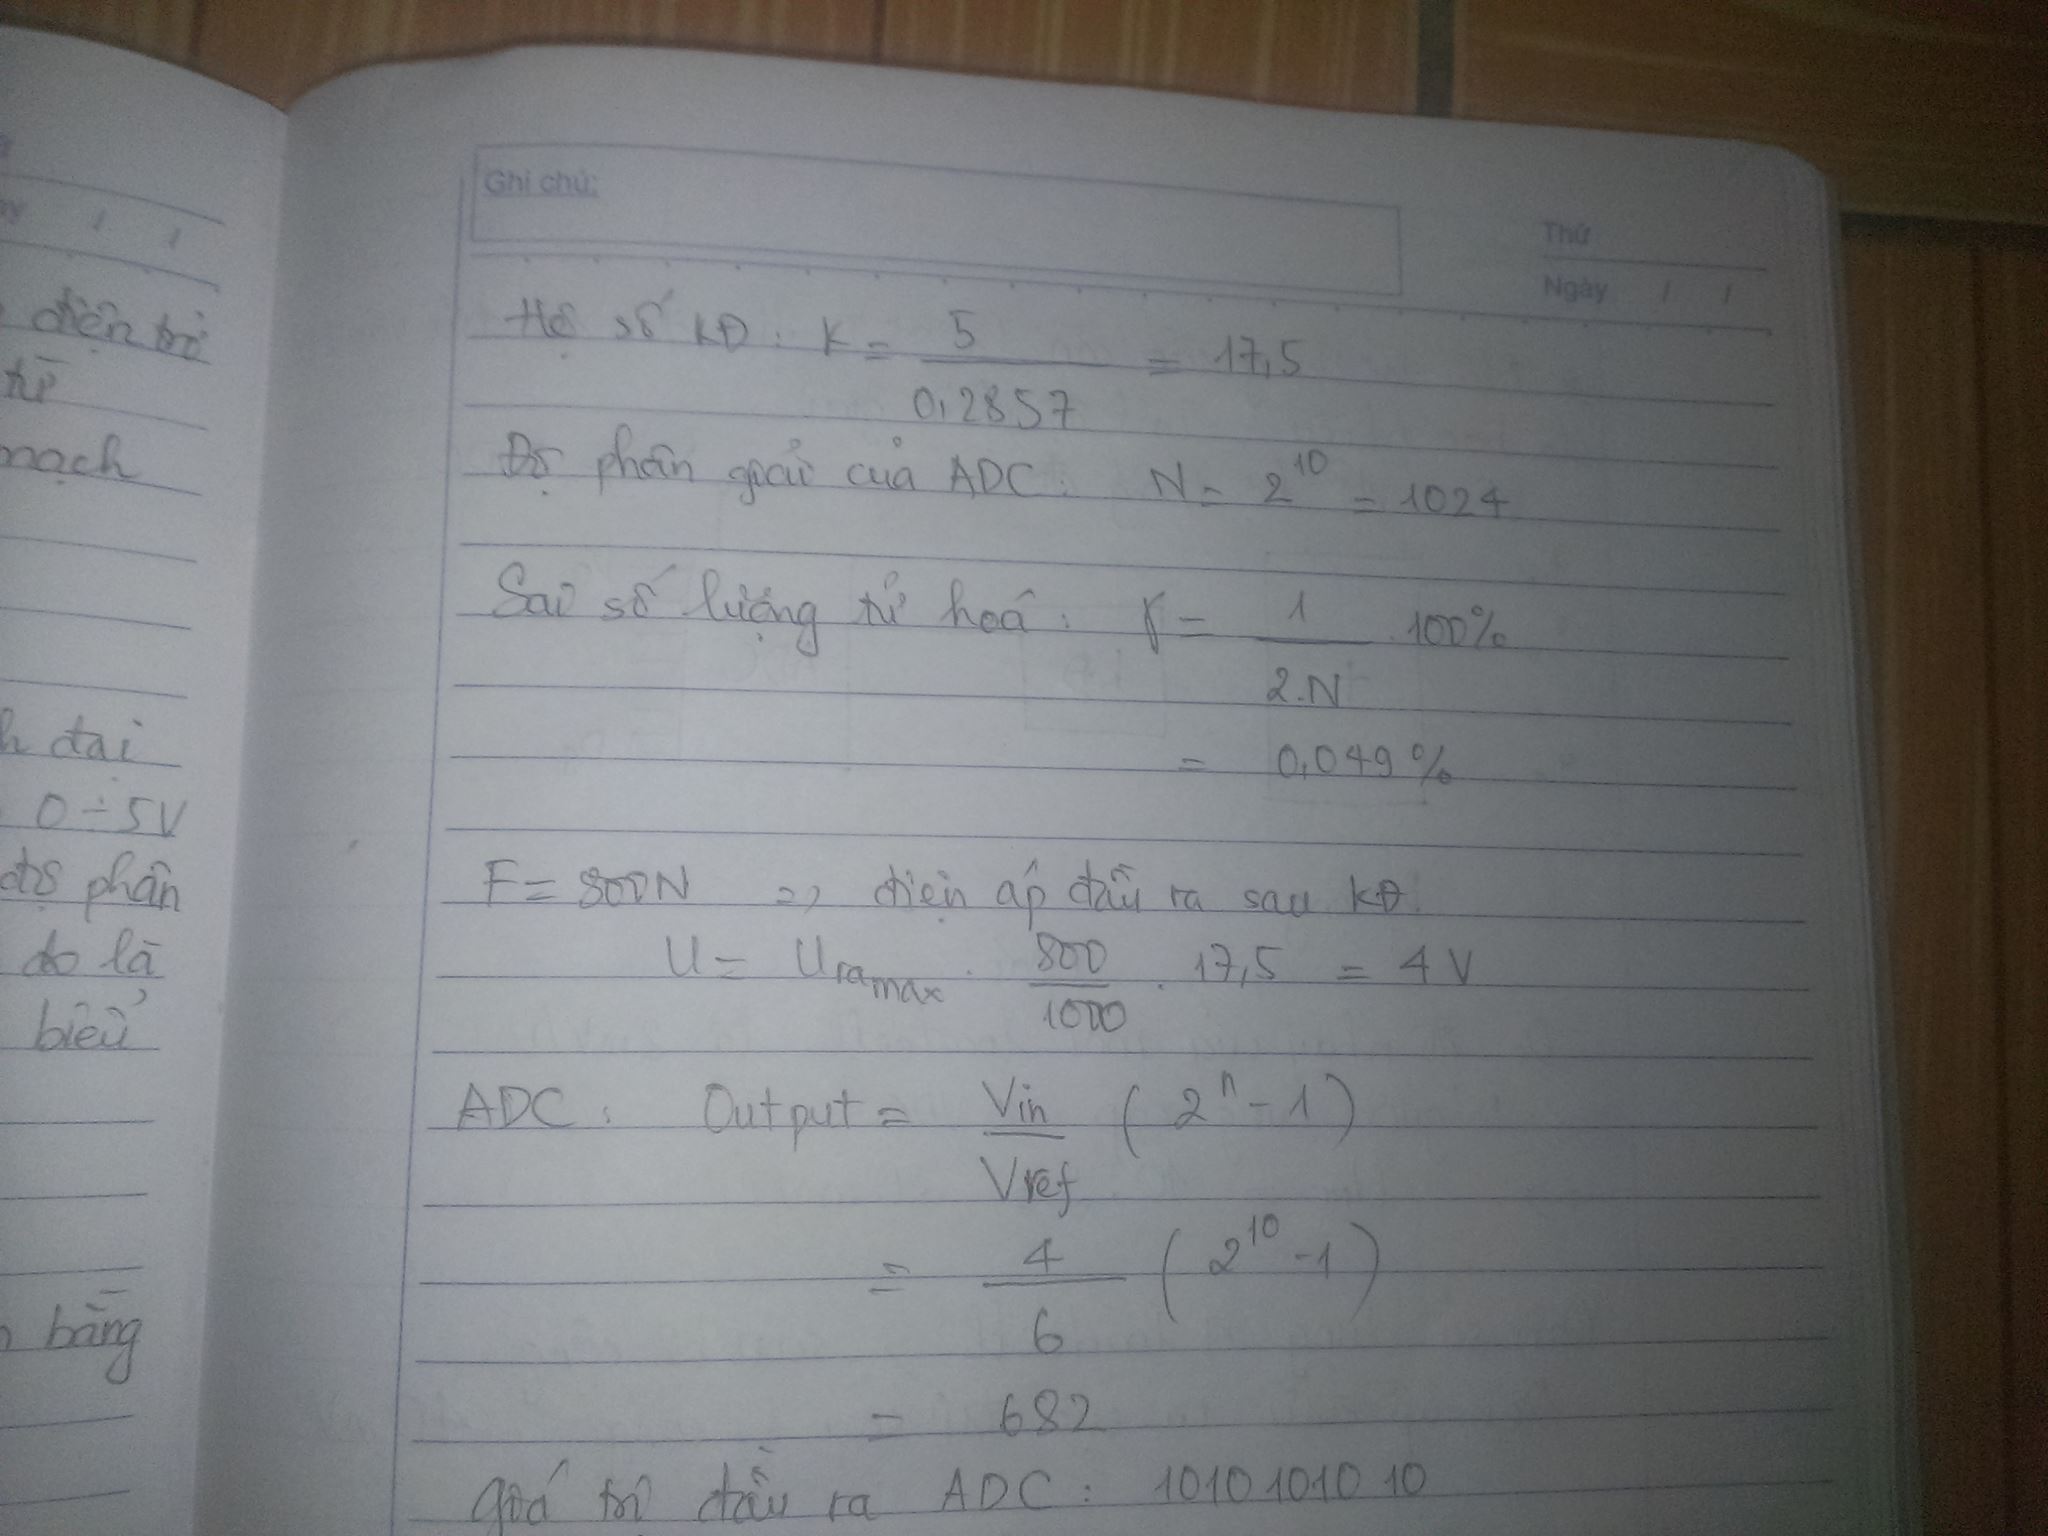 điện trở
từ
mạch
đại
0÷5V
độ phân
đo là
biểu
bằng
Ghi chú:
Thứ
Ngày / /
Hệ số KĐ: K = 5 / 0,2857 = 17,5
Độ phân giải của ADC: N = 2^10 = 1024
Sai số lượng tử hoá: γ = 1 / 2.N . 100%
= 0,049%
F = 800N => điện áp đầu ra sau KĐ.
U = Uramax . 800 / 1000 . 17,5 = 4V
ADC: Output = Vin / Vref (2^n - 1)
= 4 / 6 (2^10 - 1)
= 682
giá trị đầu ra ADC: 1010101010